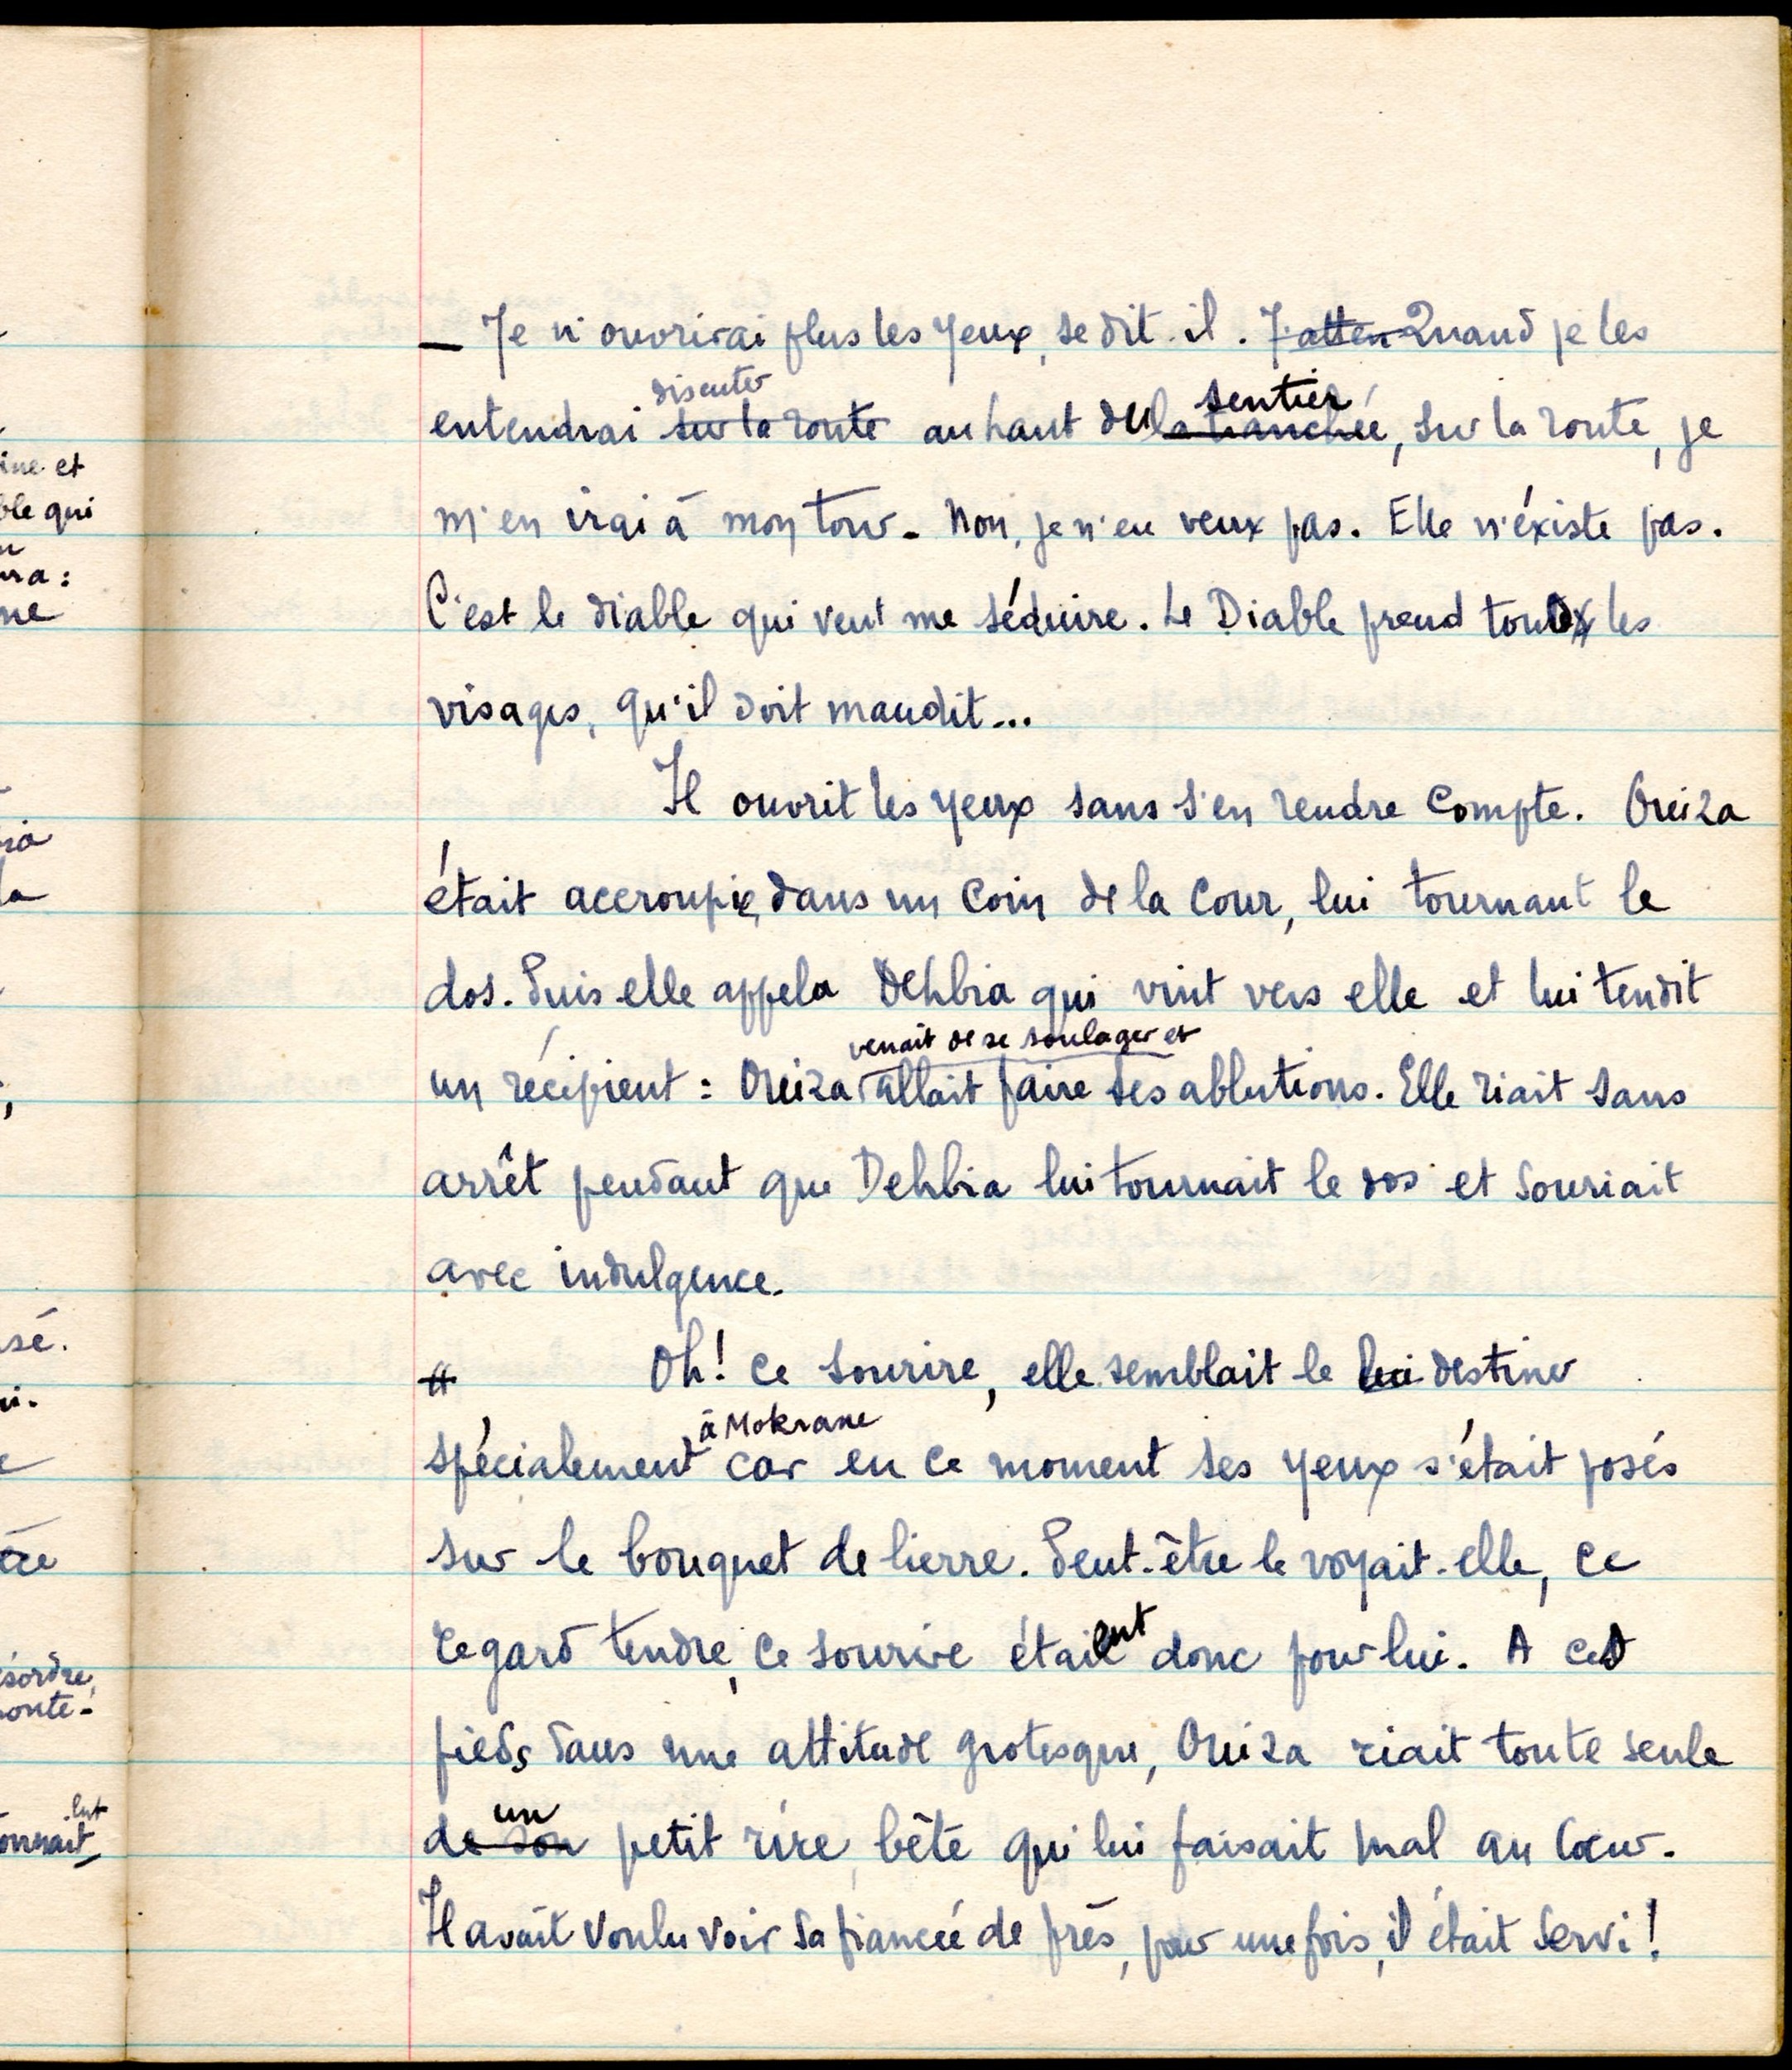 — Je n'ouvrirai plus les yeux, se dit-il. J'atten Quand je les
discuter sentier
entendrai sur la route au haut du la tranchée, sur la route, je
m'en irai à mon tour. Non, je n'en veux pas. Elle n'éxiste pas.
C'est le diable qui veut me séduire. Le Diable prend tous les
visages, qu'il soit maudit...
Il ouvrit les yeux sans s'en rendre compte. Ouiza
était accroupie, dans un coin de la cour, lui tournant le
dos. Puis elle appela Dehbia qui vint vers elle et lui tendit
venait de se soulager et
un récipient : Ouiza allait faire ses ablutions. Elle riait sans
arrêt pendant que Dehbia lui tournait le dos et souriait
avec indulgence.
Oh! ce sourire, elle semblait le lui destiner
à Mokrane
spécialement car en ce moment ses yeux s'était posés
sur le bouquet de lierre. Peut-être le voyait-elle, ce
regard tendre, ce sourire étaient donc pour lui. A ces
pieds dans une attitude grotesque, Ouiza riait toute seule
un
de son petit rire bête qui lui faisait mal au cœur.
Il avait voulu voir sa fiancée de près, pour une fois, il était servi!
ine et
ble qui
ne
la
sé.
ésordre,
onte-
lut
onnait